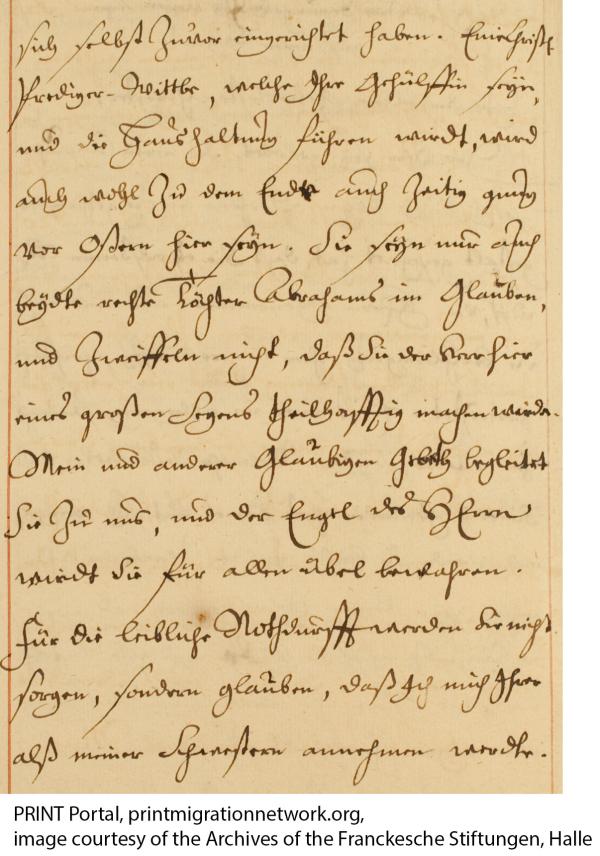 sich selbst Zuvor eingerichtet haben. Eine Christl
Prediger-Wittbe, welche Ihre Gehülffin seyn,
und die Haushaltung führen wirdt, wird
auch wohl Zu dem Ende auch Zeitig gnug
vor Ostern hier seyn. Sie seyn nur auch
beydte rechte Töchter Abrahams im Glauben,
und Zweiffeln nicht, daß Sie der Herr hier
eines großen Segens theilhafftig machen werde.
Mein und anderer Gläubigen Gebeth begleitet
Sie Zu uns, und der Engel des HErrn
wirdt Sie für allen übel bewahren.
Für die leibliche Nothdurfft werden Sie nicht
sorgen, sondern glauben, daß Ich mich Ihrer
alß meiner Schwestern annehmen werdte.
PRINT Portal, printmigrationnetwork.org,
image courtesy of the Archives of the Franckesche Stiftungen, Halle